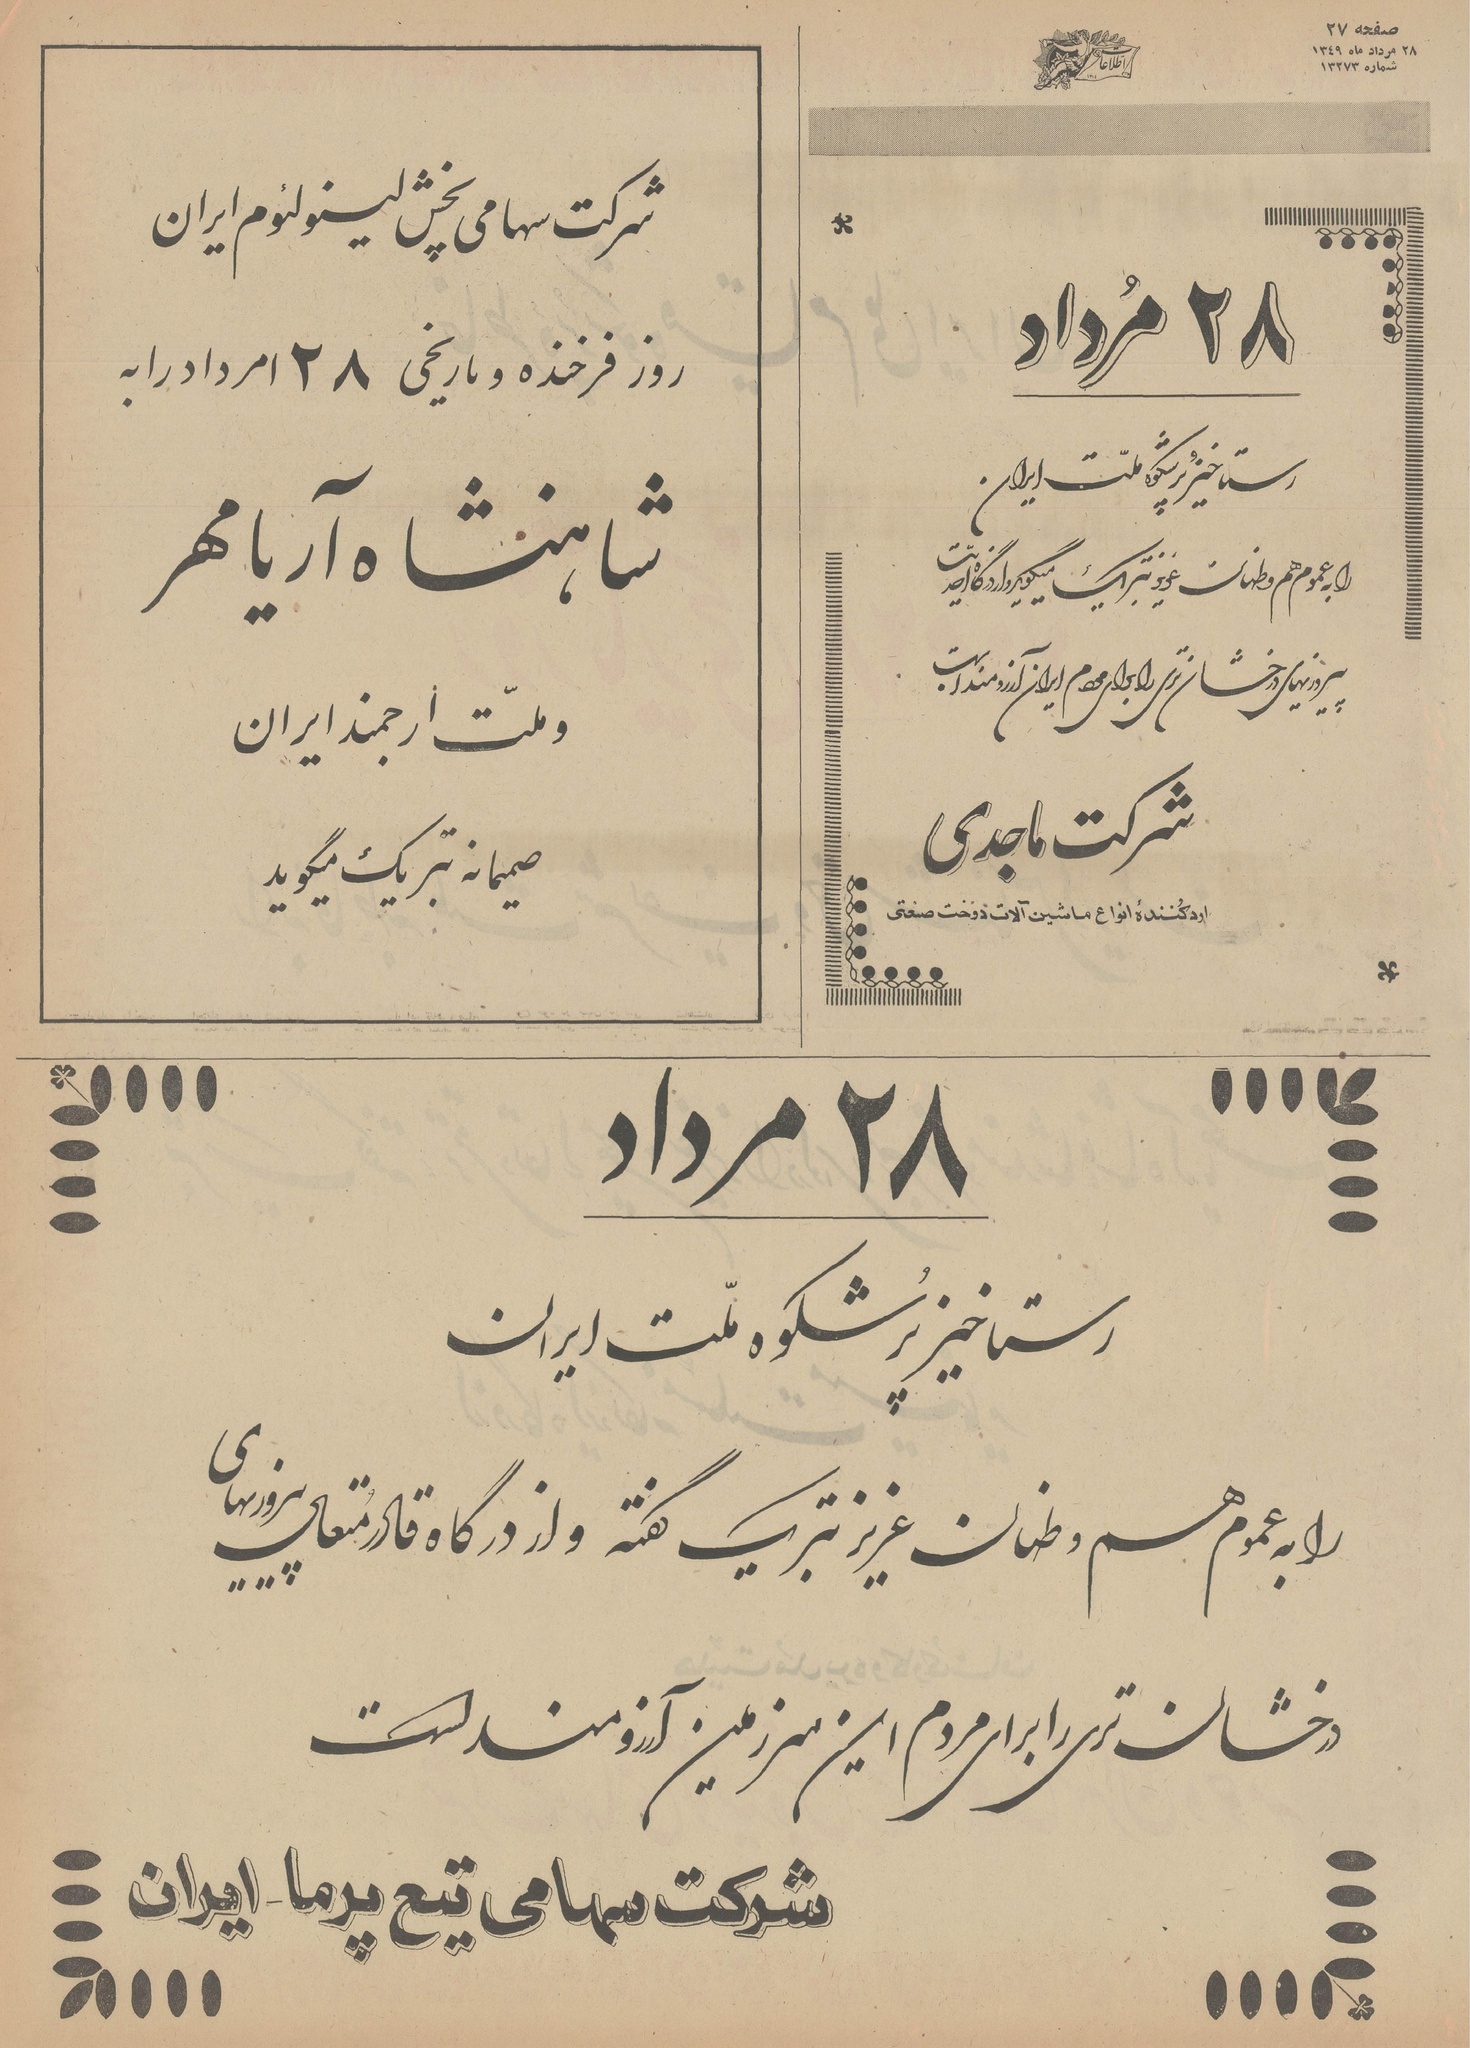 صفحه ۲۷
۲۸ مرداد ماه ۱۳۴۹
شماره ۱۳۲۷۳
اطلاعات
۲۸ مُرداد
رستاخیز پُرشکوه ملّت ایران
را به عموم هم وطنان عزیز تبریک میگوید و از درگاه احدیت
پیروزیهای درخشان تری را برای مردم ایران آرزومند است
شرکت ماجدی
وارد کنندهٔ انواع ماشین آلات دوخت صنعتی
شرکت سهامی پخش لینولئوم ایران
روز فرخنده و تاریخی ۲۸ امرداد را به
شاهنشاه آریامهر
و ملّت ارجمند ایران
صمیمانه تبریک میگوید
۲۸ مرداد
رستاخیز پُرشکوه ملّت ایران
را به عموم هم وطنان عزیز تبریک گفته و از درگاه قادر مُتعال پیروزیهای
درخشان تری را برای مردم این سرزمین آرزومند است
شرکت سهامی تیغ پرما - ایران